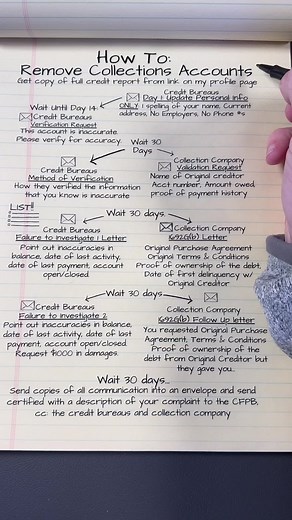 How To:
Remove Collections Accounts
Get copy of full credit report from link on my profile page
Credit Bureaus
Day 1 Update Personal Info
ONLY 1 spelling of your name, Current
address, No Employers, No Phone #s
Wait Until Day 14:
Credit Bureaus
Verification Request
This account is inaccurate.
Please verify for accuracy.
Wait 30
Days
Credit Bureaus
Method of Verification
How they verified the information
that you know is inaccurate
Collection Company
Validation Request
Name of Original creditor
Acct number, Amount owed
proof of payment history
LIST!!
Wait 30 days..
Credit Bureaus
Failure to Investigate 1 Letter
Point out inaccuracies in
balance, date of last activity,
date of last payment, account
open/closed.
Collection Company
1692G(b) Letter
Original Purchase Agreement
Original Terms & Conditions
Proof of ownership of the debt,
Date of First delinquency w/
Original Creditor
Wait 30 days..
Credit Bureaus
Failure to Investigate 2
Point out inaccuracies in balance,
date of last activity, date of last
payment, account open/closed
Request $1000 in damages.
Collection Company
1692G(b) Follow Up letter
You requested Original Purchase
Agreement, Terms & Conditions
Proof of ownership of the
debt from Original Creditor but
they gave you...
Wait 30 days...
Send copies of all communication into an envelope and send
certified with a description of your complaint to the CFPB,
cc: the credit bureaus and collection company